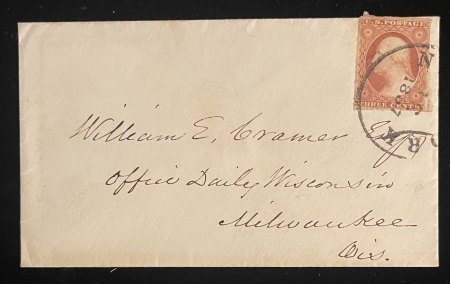 U.S. POSTAGE
THREE CENTS
N
RK
1857
William E. Cramer Esqr
Office Daily Wisconsin
Milwaukee
Wis.